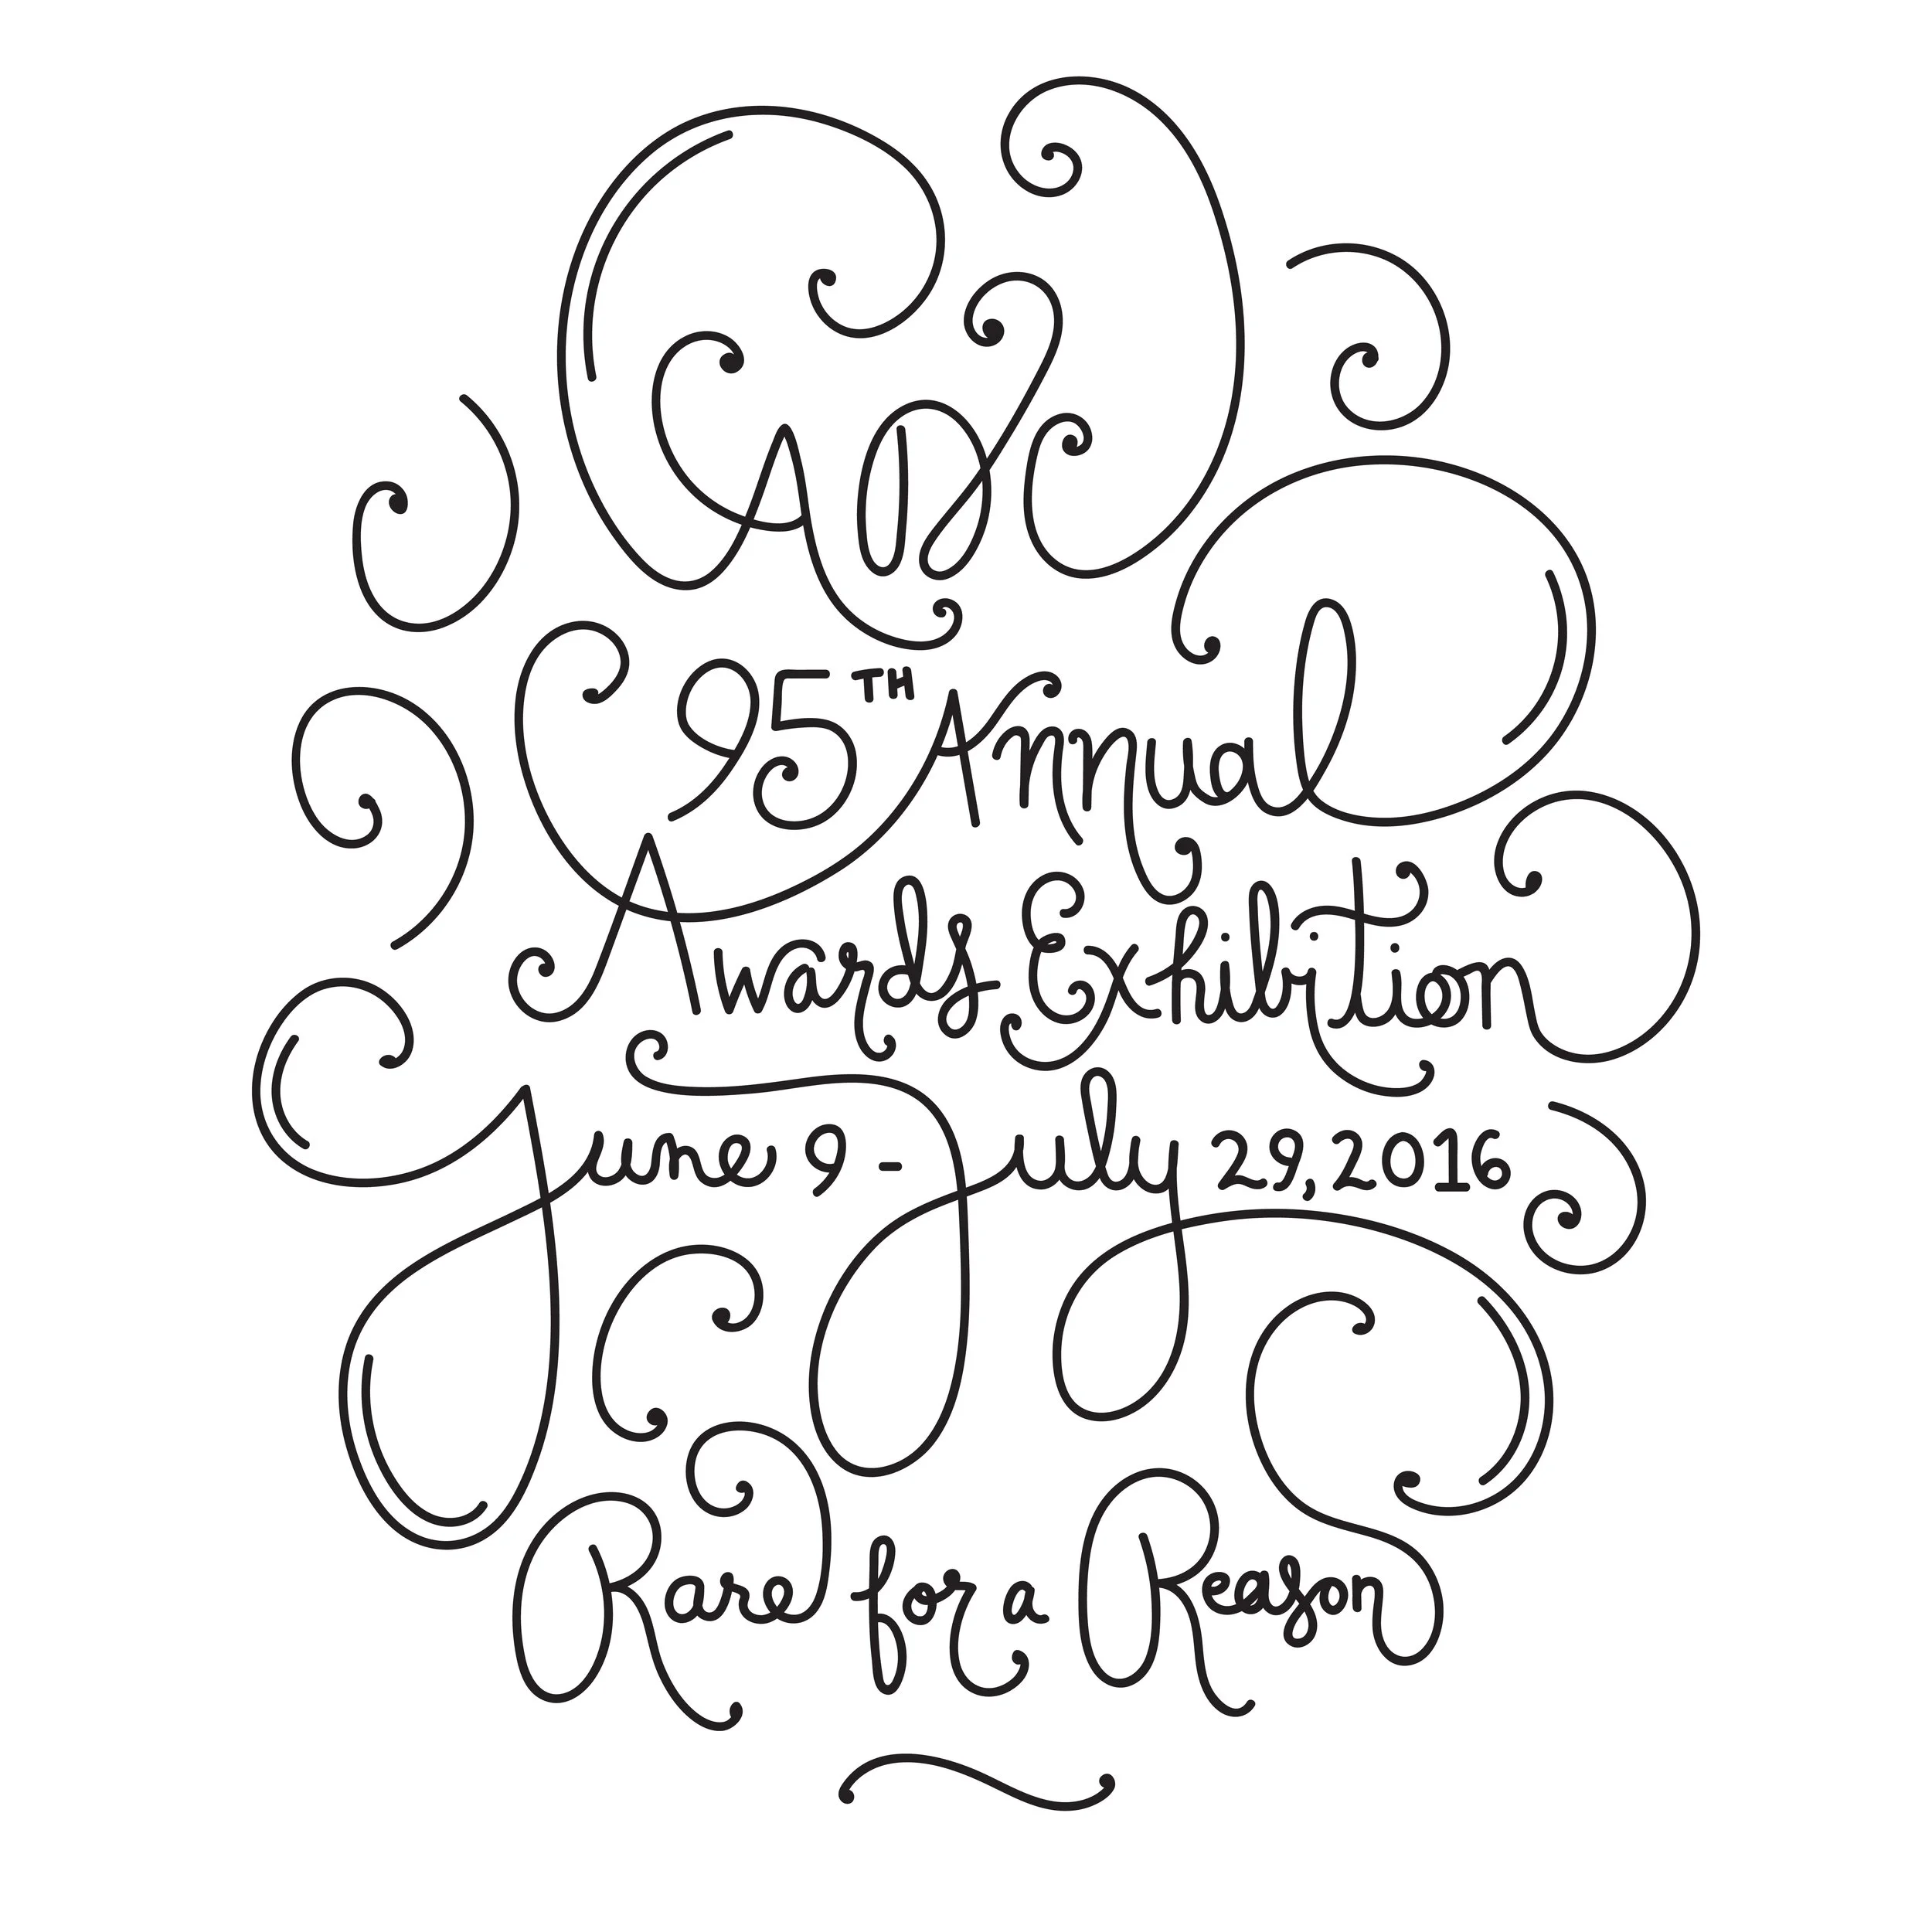 ADC
95TH Annual
Awards Exhibition
June 9 - July 29, 2016
Rare for a Reason